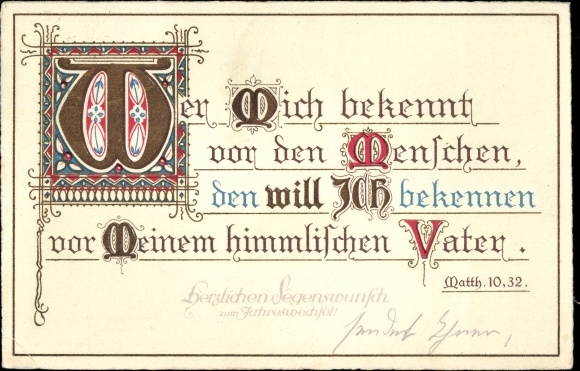 Wer Mich bekennt
vor den Menschen,
den will Ich bekennen
vor Meinem himmlischen Vater.
Matth. 10,32.
Herzlichen Segenswunsch
zum Jahreswechsel!
sendet